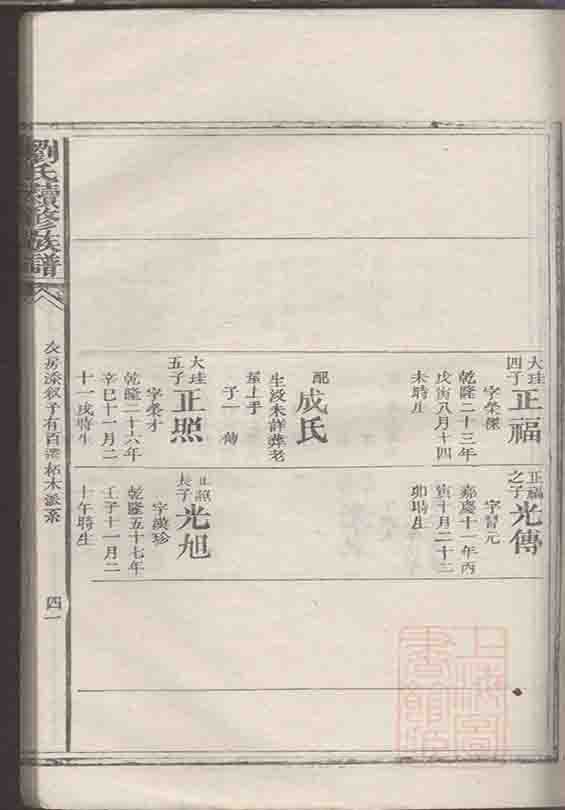 大珪四子
正福
字榮傑
乾隆二十三年
戊寅八月十四
未時生
配
成氏
生没未詳葬老
屋上手
子一 傳
大珪五子
正照
字榮才
乾隆二十六年
辛巳十一月二
十一戌時生
正福之子
光傳
字習元
嘉慶十一年丙
寅十月二十二
卯時生
正照長子
光旭
字漢珍
乾隆五十七年
壬子十一月二
十午時生
劉氏續修族譜
次房添叙子有百梁柘木派系
四一
上海圖書館藏